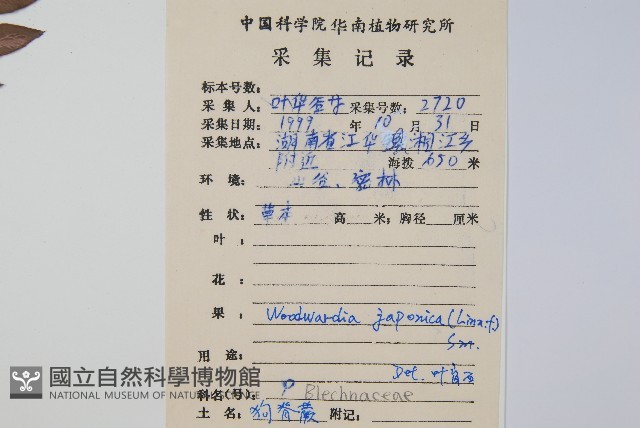 中国科学院华南植物研究所
采 集 记 录
标本号数：
采 集 人：叶华谷 采集号数：2720
采集日期：1999 年 10 月 31 日
采集地点：湖南省江华县湘江乡
附近 海拨 650 米
环 境：山谷、密林
性 状：草本 高 米；胸径 厘米
叶：
花：
果：Woodwardia japonica (Linn.f.)
Sm.
用 途：
Det. 叶
科名(号)：Blechnaceae
土 名：狗脊蕨 附记：
國立自然科學博物館
NATIONAL MUSEUM OF NATURAL SCIENCE